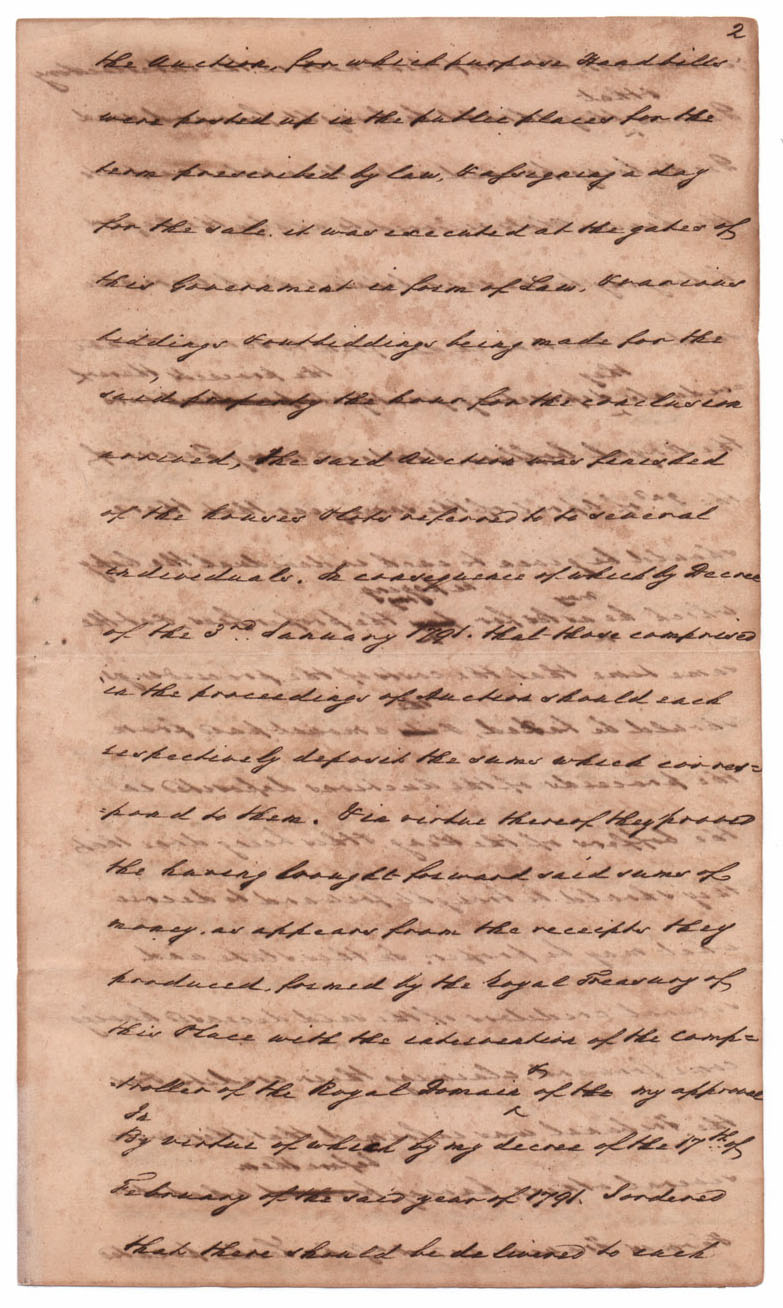 2
the Auction, for which purpose Handbills
were posted up in the public places for the
term prescribed by law, & assigning a day
for the sale. it was executed at the gates of
this Government in form of Law, & various
biddings & outbiddings being made for the
said property the hour for the conclusion
arrived, the said Auction was finished
of the houses & lots referred to to several
individuals. In consequence of which by Decree
of the 3rd January 1791. that those comprised
in the proceedings of Auction should each
respectively deposit the sums which corres=
=pond to them. & in virtue thereof they proved
the having brought forward said sums of
money, as appears from the receipts they
produced, formed by the Royal Treasury of
this Place with the intervention of the comp=
troller of the Royal Domain & of the my approval
In
By virtue of which by my decree of the 17th of
February of the said year of 1791. I ordered
that there should be delivered to each